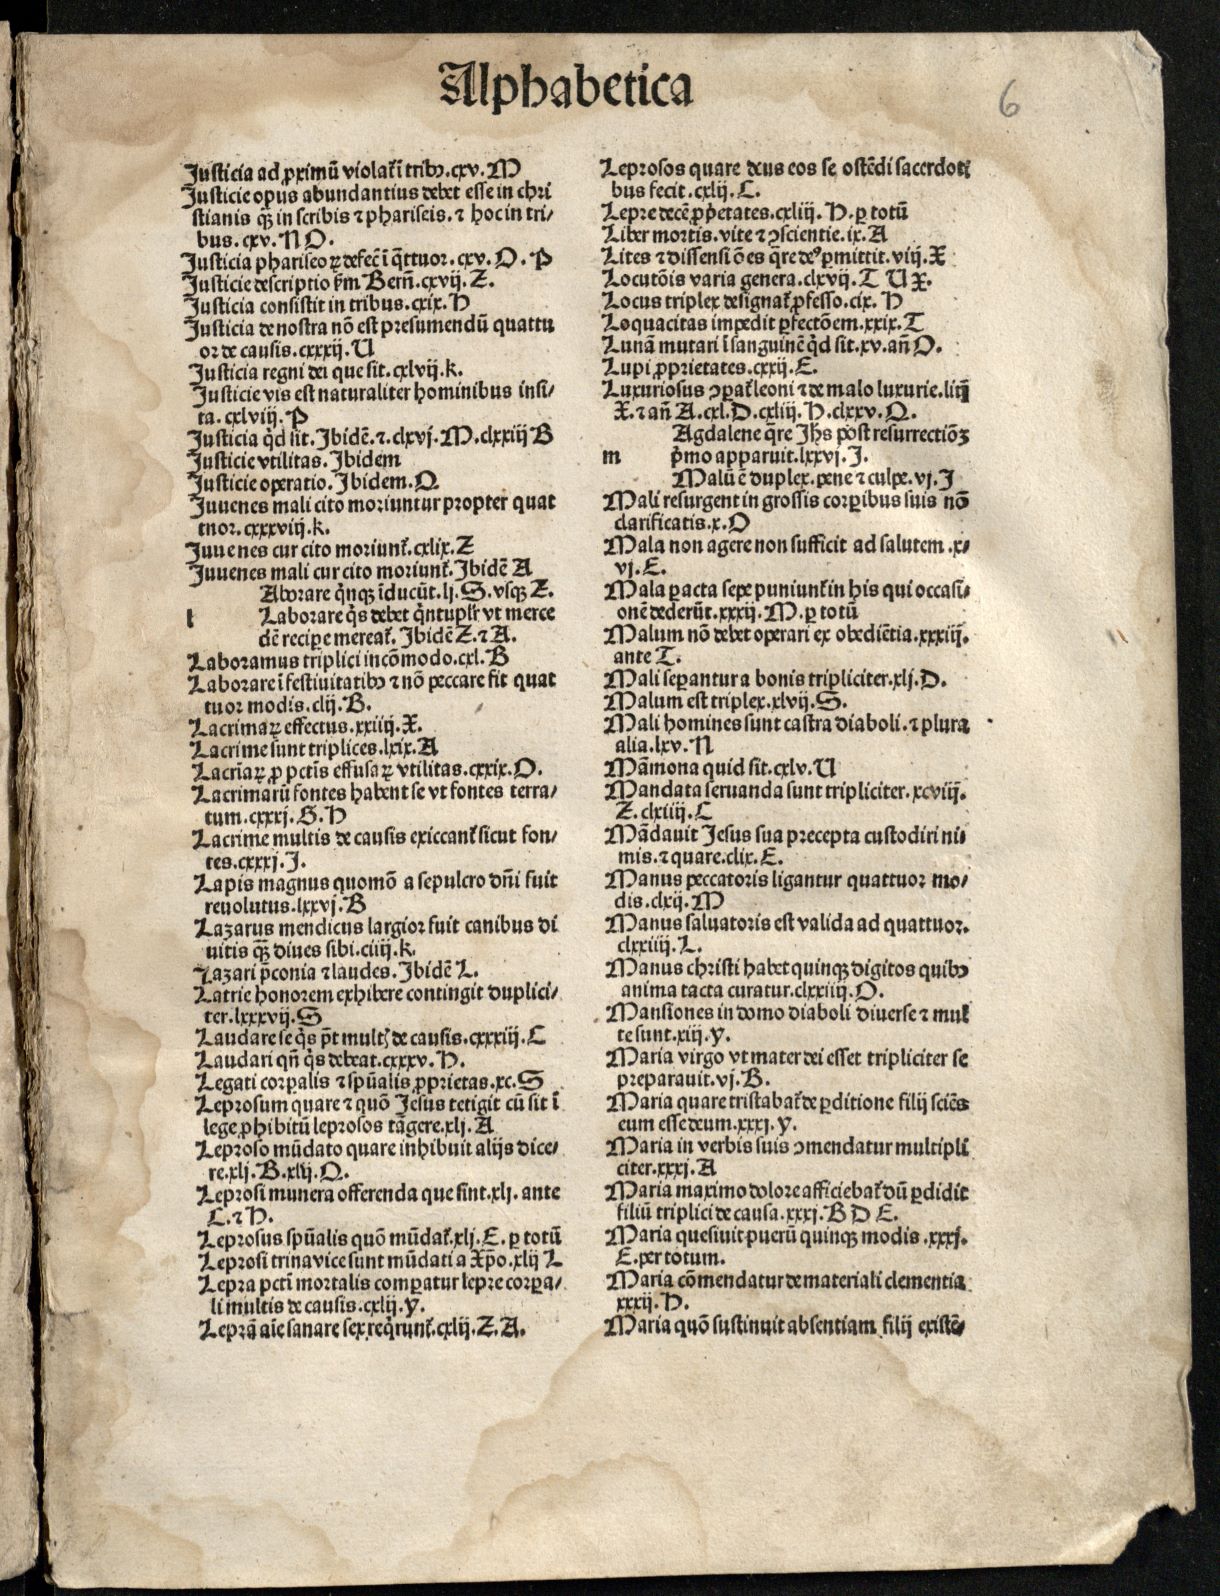 Alphabetica
6
Justicia ad ꝓximū violat᷑ ī tribꝰ.cxv.M
Justicie opus abundantius debet esse in chri
stianis qꝫ in scribis ⁊ phariseis.⁊ hoc in tri/
bus.cxv.N O.
Justicia phariseoꝝ defec̄ ī q̄ttuor.cxv.O.P
Justicie descriptio ẜm Bern̄.cxvij.Z.
Justicia consistit in tribus.cxix.H
Justicia de nostra nō est presumendū quattu
or de causis.cxxxij.U
Justicia regni dei que sit.cxlvij.k.
Justicie vis est naturaliter hominibus insi/
ta.cxlviij.P
Justicia qͥd sit.Ibidē.⁊.clxvj.M.clxxiij B
Justicie vtilitas.Ibidem
Justicie operatio.Ibidem.Q
Juuenes mali cito moriuntur propter quat
tuor.cxxxviij.k.
Juuenes cur cito moriunt᷑.cxlix.Z
Juuenes mali cur cito moriunt᷑.Ibidē A
Aborare qͥnqꝫ īducūt.lj.S.vsqꝫ Z.
l Laborare qͥs debet qͥntuplr̄ vt merce
dē reciꝑe mereat᷑.Ibidē Z.⁊ A.
Laboramus triplici incōmodo.cxl.B
Laborare ī festiuitatibꝰ ⁊ nō peccare fit quat
tuor modis.clij.B.
Lacrimaꝝ effectus.xxiiij.X.
Lacrime sunt triplices.lxix.A
Lacrīaꝝ ꝓ pctīs effusaꝝ vtilitas.cxxix.O.
Lacrimarū fontes habent se vt fontes terra/
rum.cxxxj.G.H
Lacrime multis de causis exiccant᷑ sicut fon/
tes.cxxxj.J.
Lapis magnus quomō a sepulcro dn̄i fuit
reuolutus.lxxvj.B
Lazarus mendicus largior fuit canibus di
uitis qꝫ diues sibi.ciiij.k.
Lazari p̄conia ⁊ laudes.Ibidē L.
Latrie honorem exhibere contingit duplici/
ter.lxxxvij.S
Laudare se qͥs pt̄ multꝭ de causis.cxxxiij.C
Laudari qn̄ qͥs debeat.cxxxv.H.
Legati corꝑalis ⁊ spūalis ꝓprietas.xc.S
Leprosum quare ⁊ quō Jesus tetigit cū sit ī
lege ꝓhibitū leprosos tāgere.xlj.A
Leproso mūdato quare inhibuit alijs dice/
re.xlj.B.xlij.Q.
Leprosi munera offerenda que sint.xlj.ante
C.⁊ H.
Leprosus spūalis quō mūdat᷑.xlj.E.ꝑ totū
Leprosi trina vice sunt mūdati a Xp̄o.xlij L
Lepra pctī mortalis comꝑatur lepre corꝑa/
li multis de causis.cxlij.y.
Leprā aīe sanare sex reqͥrunt᷑.cxlij.Z.A.
Leprosos quare deus eos se ostēdi sacerdoti
bus fecit.cxlij.C.
Lepre decē ꝓpͥetates.cxliij.H.ꝑ totū
Liber mortis.vite ⁊ ꝯscientie.ix.A
Lites ⁊ dissensiōes q̄re deꝰ ꝑmittit.viij.X
Locutōis varia genera.clxvij.T U X.
Locus triplex designat᷑ ꝓfesso.cix.H
Loquacitas impedit ꝑfectōem.xxix.T
Lunā mutari ī sanguinē qͥd sit.xv.an̄ O.
Lupi ꝓprietates.cxxij.E.
Luxuriosus ꝯꝑat᷑ leoni ⁊ de malo luxurie.liiij
X.⁊ an̄ A.cxl.D.cxliij.H.clxxv.Q.
Agdalene q̄re Jhs post resurrectiōꝫ
m pͥmo apparuit.lxxvj.J.
Malū ē duplex.pene ⁊ culpe.vj.J
Mali resurgent in grossis corꝑibus suis nō
clarificatis.x.O
Mala non agere non sufficit ad salutem.x/
vj.E.
Mala ꝑacta sepe puniunt᷑ in his qui occasi/
onē dederūt.xxxij.M.ꝑ totū
Malum nō debet operari ex obediētia.xxxiij.
ante T.
Mali seꝑantur a bonis tripliciter.xlj.D.
Malum est triplex.xlvij.S.
Mali homines sunt castra diaboli.⁊ plura
alia.lxv.N
Māmona quid sit.cxlv.U
Mandata seruanda sunt tripliciter.xcviij.
Z.clxiiij.C
Mādauit Jesus sua precepta custodiri ni
mis.⁊ quare.clix.E.
Manus peccatoris ligantur quattuor mo/
dis.clxij.M
Manus saluatoris est valida ad quattuor.
clxxiiij.L.
Manus christi habet quinqꝫ digitos quibꝰ
anima tacta curatur.clxxiiij.O.
Mansiones in domo diaboli diuerse ⁊ mul
te sunt.xiij.y.
Maria virgo vt mater dei esset tripliciter se
preparauit.vj.B.
Maria quare tristabat᷑ de ꝑditione filij sciēs
eum esse deum.xxxj.y.
Maria in verbis suis ꝯmendatur multipli
citer.xxxj.A
Maria maximo dolore afficiebat᷑ dū ꝑdidit
filiū triplici de causa.xxxj.B D E.
Maria quesiuit puerū quinqꝫ modis.xxxj.
E.per totum.
Maria cōmendatur de materiali clementia
xxxij.H.
Maria quō sustinuit absentiam filij existē/